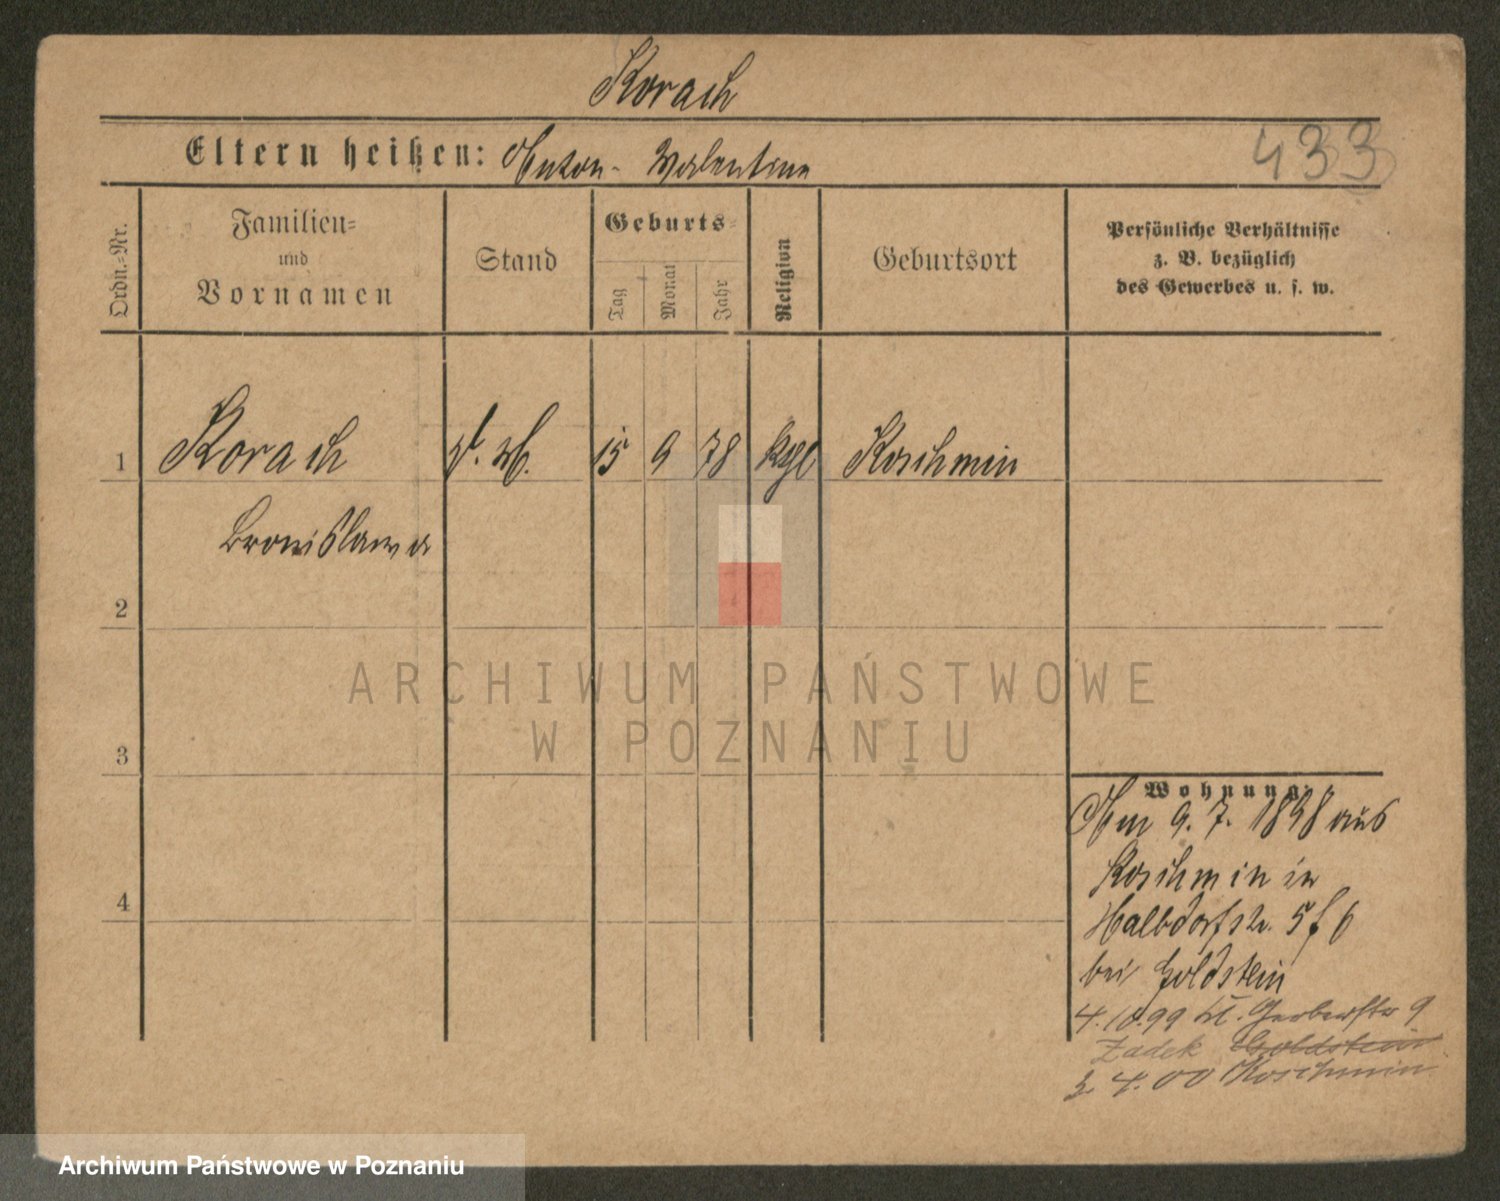 Korach
Eltern heißen: Anton - Valentine
433
Ordn.-Nr.
Familien-
und
Vornamen
Stand
Geburts-
Tag
Monat
Jahr
Religion
Geburtsort
Persönliche Verhältnisse
z. B. bezüglich
des Gewerbes u. s. w.
1 Korach 15 9 78 Koschmin
Bronislawa
2
ARCHIWUM PAŃSTWOWE
W POZNANIU
3
4
Wohnung
Am 9. 7. 1898 aus
Koschmin in
Halbdorfstr. 5 f 6
bei Goldstein
4.10.99 Kl. Gerberstr 9
Zadek Goldstein
3. 4. 00 Koschmin
Archiwum Państwowe w Poznaniu